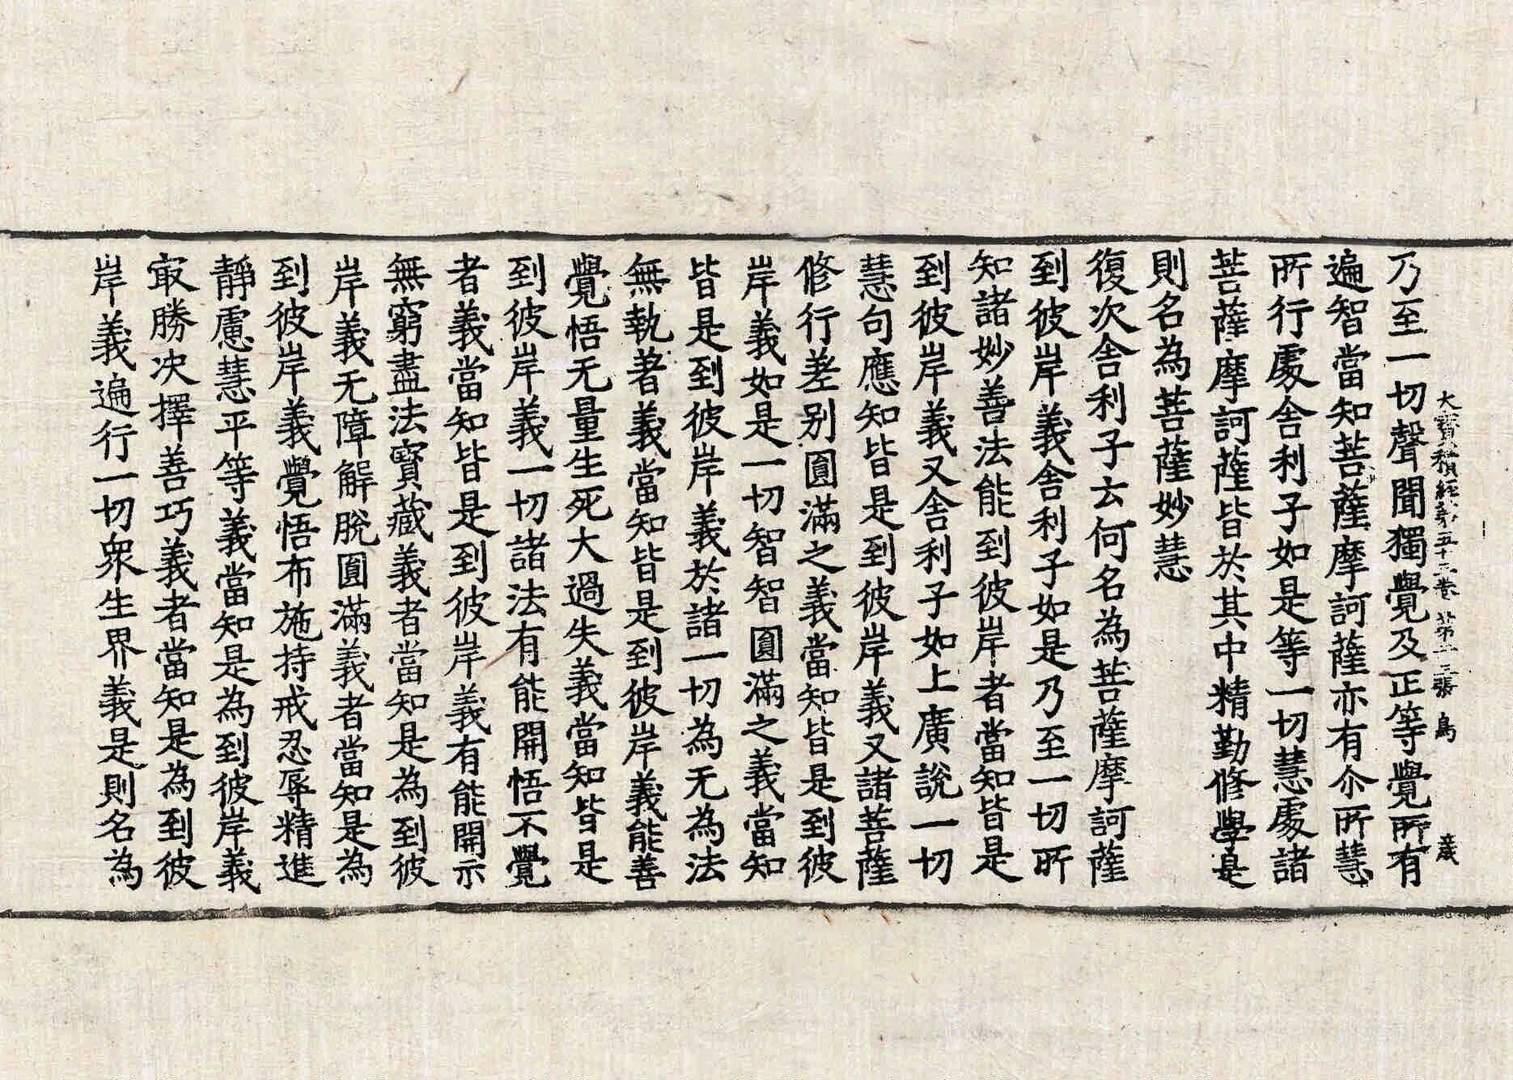 大寶積經第五十三卷 第廿三張 鳥
歲
乃至一切聲聞獨覺及正等覺所有
遍智當知菩薩摩訶薩亦有尒所慧
所行處舍利子如是等一切慧處諸
菩薩摩訶薩皆於其中精勤修學是
則名為菩薩妙慧
復次舍利子云何名為菩薩摩訶薩
到彼岸義舍利子如是乃至一切所
知諸妙善法能到彼岸者當知皆是
到彼岸義又舍利子如上廣說一切
慧句應知皆是到彼岸義又諸菩薩
修行差別圓滿之義當知皆是到彼
岸義如是一切智智圓滿之義當知
皆是到彼岸義於諸一切為无為法
無執著義當知皆是到彼岸義能善
覺悟无量生死大過失義當知皆是
到彼岸義一切諸法有能開悟不覺
者義當知皆是到彼岸義有能開示
無窮盡法寶藏義者當知是為到彼
岸義无障解脫圓滿義者當知是為
到彼岸義覺悟布施持戒忍辱精進
靜慮慧平等義當知是為到彼岸義
㝡勝决擇善巧義者當知是為到彼
岸義遍行一切衆生界義是則名為